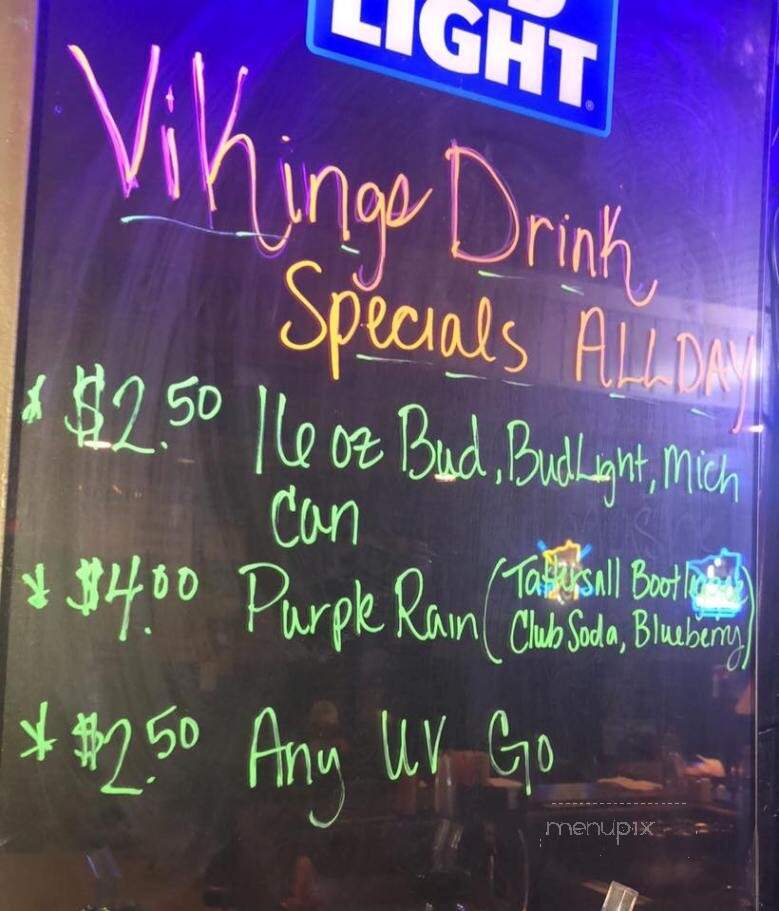 LIGHT
Vikings Drink
Specials ALL DAY
* $2.50 16 oz Bud, Bud Light, Mich
Can
* $4.00 Purple Rain (Tattersall
Club Soda, Blueberry)
* $2.50 Any UV Go
menupix